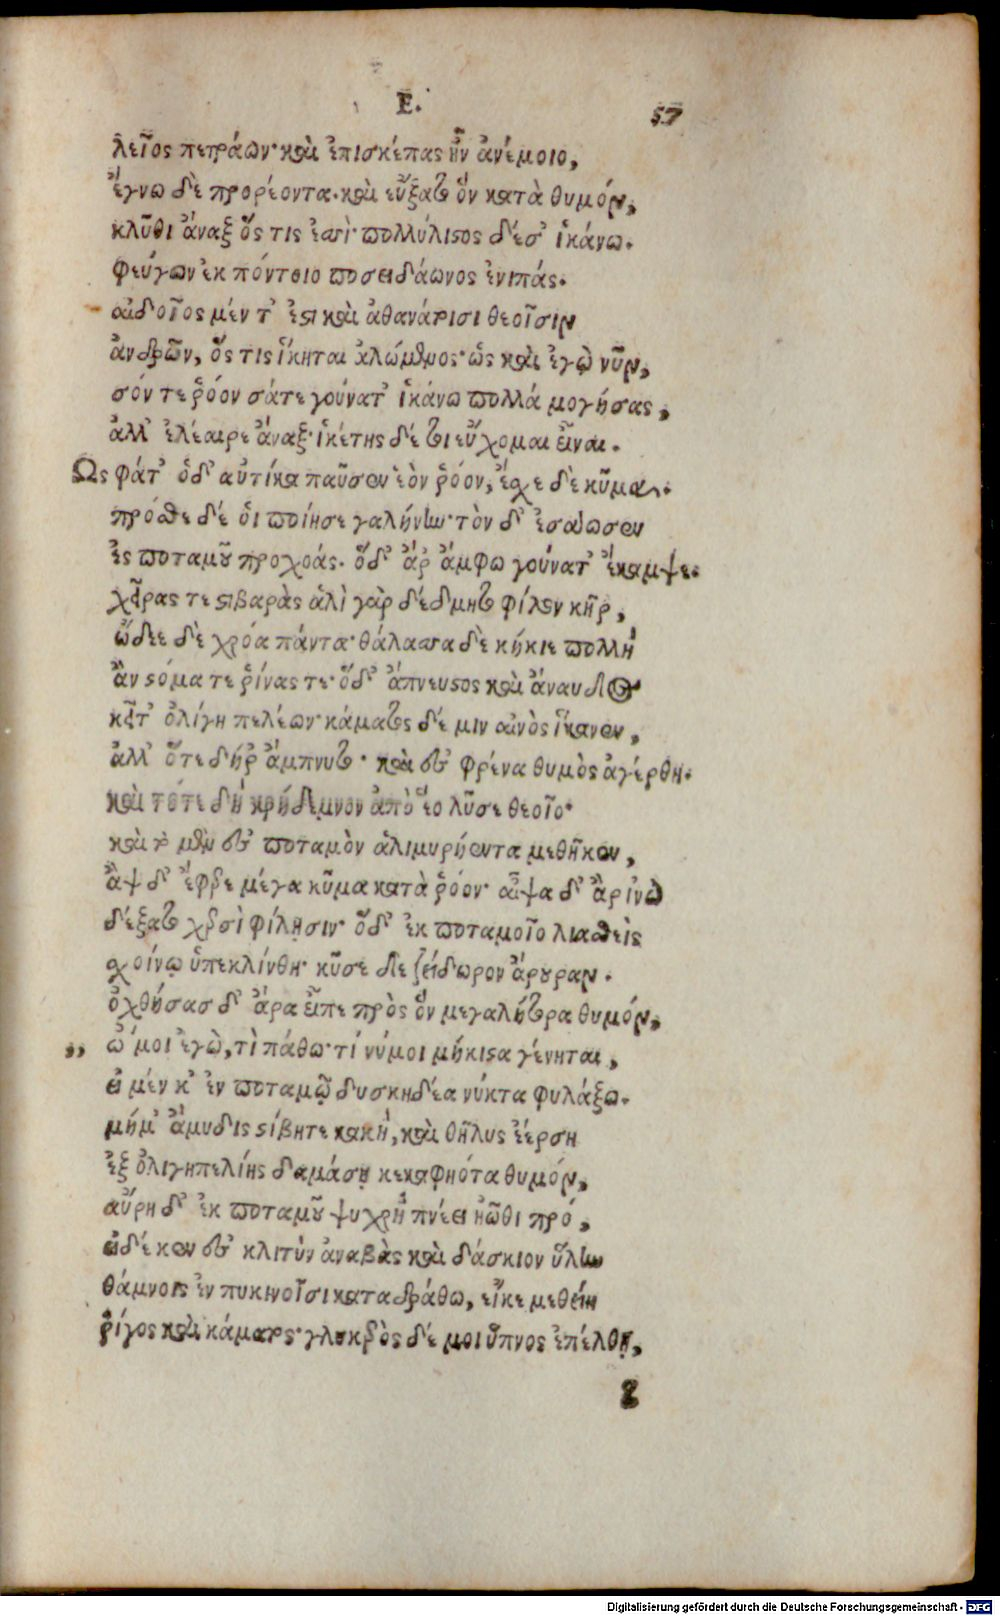 Ε.
57
λεῖος πετράων· καὶ ἐπισκέπας ἦν ἀνέμοιο,
ἔγνω δὲ προρέοντα. καὶ εὔξατο ὃν κατὰ θυμόν,
κλῦθι ἄναξ ὅς τις ἐσσὶ· πολλύλιστος δέ σ' ἱκάνω.
φεύγων ἐκ πόντοιο ποσειδάωνος ἐνιπάς.
αἰδοῖος μέν τ' ἐστι καὶ ἀθανάτοισι θεοῖσιν
ἀνδρῶν, ὅς τις ἵκηται ἀλώμενος· ὡς καὶ ἐγὼ νῦν,
σόν τε ῥόον σά τε γούνατ' ἱκάνω πολλά μογήσας,
ἀλλ' ἐλέαιρε ἄναξ· ἱκέτης δέ τοι εὔχομαι εἶναι.
Ως φάτ' ὁδ' αὐτίκα παῦσεν ἑὸν ῥόον, ἔσχε δὲ κῦμα.
πρόσθε δέ οἱ ποίησε γαλήνην· τὸν δ' ἐσαώσεν
ἐς ποταμοῦ προχοάς. ὅδ' ἄρ' ἄμφω γούνατ' ἔκαμψε.
χεῖρας τε στιβαρὰς ἁλὶ γὰρ δέδμητο φίλον κῆρ,
ᾤδεε δὲ χρόα πάντα· θάλασσα δὲ κήκιε πολλὴ
ἂν στόμα τε ῥίνας τε· ὅδ' ἄπνευστος καὶ ἄναυδος
κεῖτ' ὀλίγη πελέων· κάματος δέ μιν αἰνὸς ἵκανεν,
ἀλλ' ὅτε δή ῥ' ἄμπνυτο· καὶ ἐς φρένα θυμὸς ἀγέρθη.
καὶ τότε δὴ κρήδεμνον ἀπὸ ἕο λῦσε θεοῖο·
καὶ τὸ μὲν ἐς ποταμὸν ἁλιμυρήεντα μεθῆκεν,
ἂψ δ' ἔφερε μέγα κῦμα κατὰ ῥόον· αἶψα δ' ἂρ ἰνὼ
δέξατο χερσὶ φίλῃσιν· ὅδ' ἐκ ποταμοῖο λιασθεὶς
σχοίνῳ ὑπεκλίνθη· κῦσε δὲ ζείδωρον ἄρουραν.
ὀχθήσας δ' ἄρα εἶπε πρὸς ὃν μεγαλήτορα θυμόν,
,, ὤ μοι ἐγὼ, τὶ πάθω· τί νύ μοι μήκιστα γένηται,
εἰ μέν κ' ἐν ποταμῷ δυσκηδέα νύκτα φυλάξω.
μή μ' ἄμυδις στίβη τε κακὴ, καὶ θῆλυς ἐέρση
ἐξ ὀλιγηπελίης δαμάσῃ κεκαφηότα θυμόν,
αὔρη δ' ἐκ ποταμοῦ ψυχρὴ πνέει ἠῶθι πρό,
εἰ δέ κεν ἐς κλιτὺν ἀναβὰς καὶ δάσκιον ὕλην
θάμνοις ἐν πυκινοῖσι καταδράθω, εἴ κε μεθείη
ῥίγος καὶ κάματος· γλυκερὸς δέ μοι ὕπνος ἐπέλθῃ,
Digitalisierung gefördert durch die Deutsche Forschungsgemeinschaft - DFG